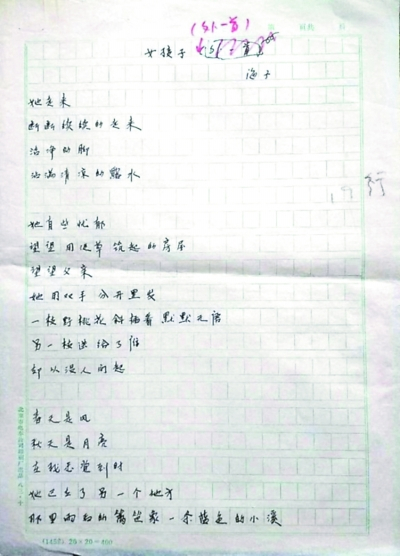 (外一首)
女孩子
海子
她走来
断断续续的走来
洁净的脚
沾满清凉的露水
19行
她有些忧郁
望望用泥草筑起的房屋
望望父亲
她用双手分开黑发
一枝野桃花斜插着默默无语
另一枝送给了谁
却从没人问起
春天是风
秋天是月亮
在我感觉到时
她已去了另一个地方
那里雨后的篱笆象一条蓝色的小溪
(1452) 20×20=400